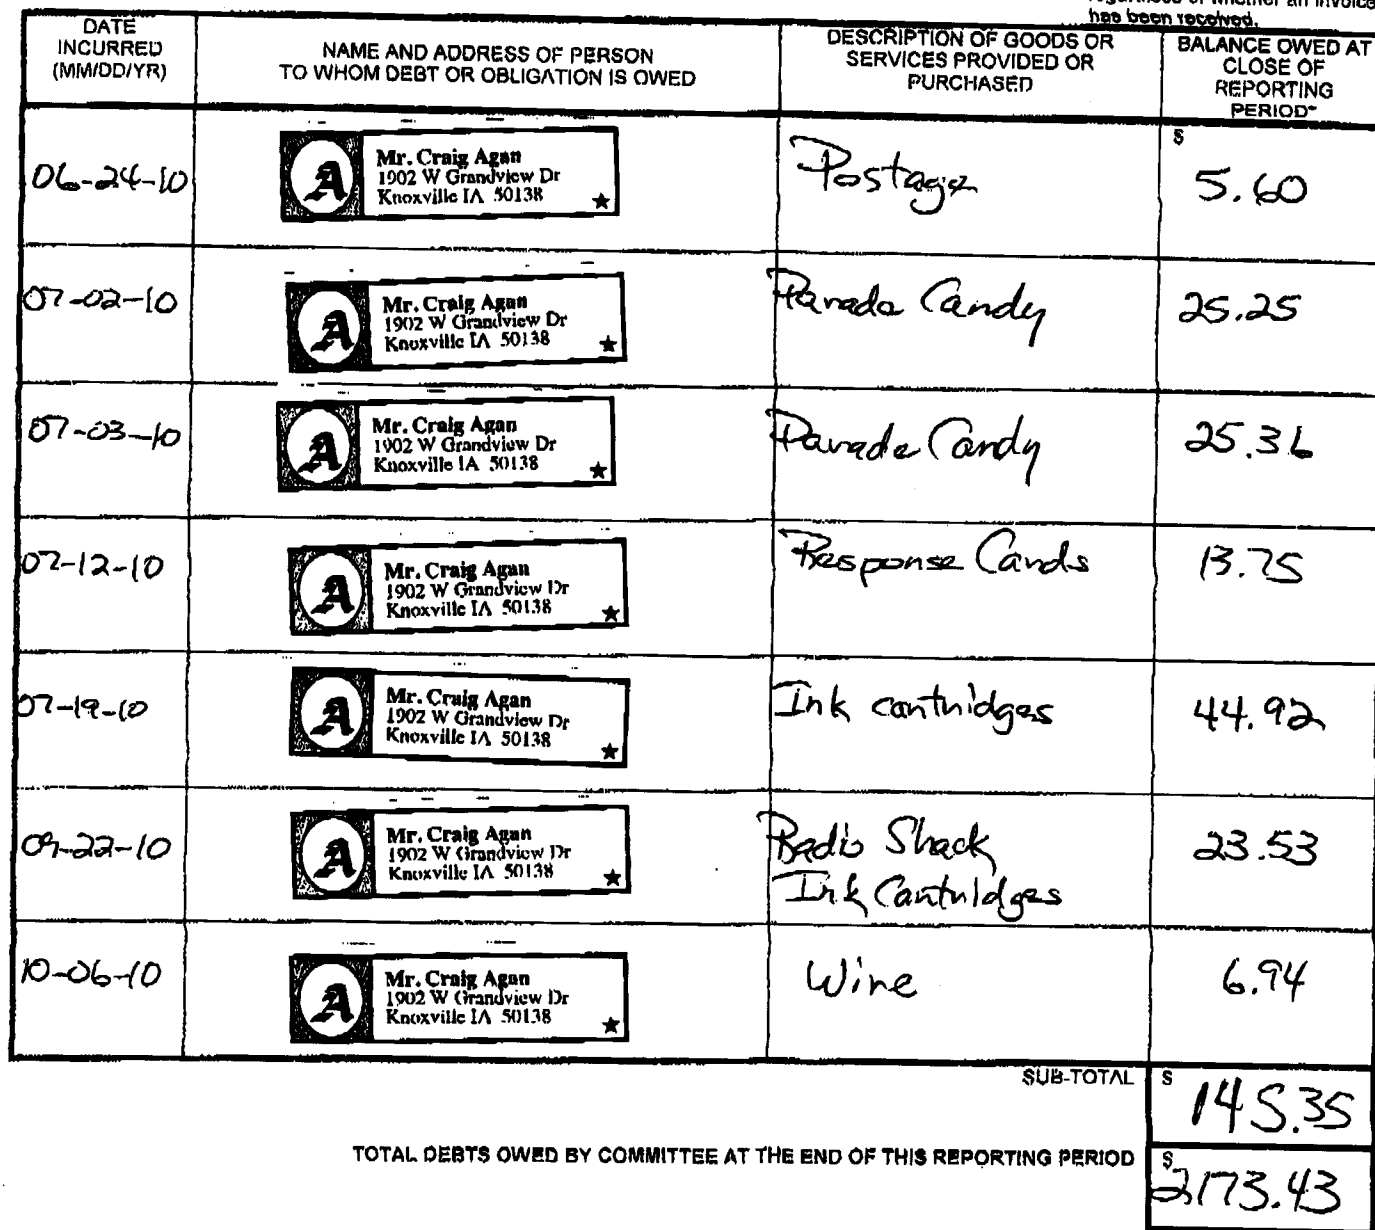 has been received.
DATE
INCURRED
(MM/DD/YR)
NAME AND ADDRESS OF PERSON
TO WHOM DEBT OR OBLIGATION IS OWED
DESCRIPTION OF GOODS OR
SERVICES PROVIDED OR
PURCHASED
BALANCE OWED AT
CLOSE OF
REPORTING
PERIOD*
06-24-10
A
Mr. Craig Agan
1902 W Grandview Dr
Knoxville IA 50138
Postage
$ 5.60
07-02-10
A
Mr. Craig Agan
1902 W Grandview Dr
Knoxville IA 50138
Parade Candy
25.25
07-03-10
A
Mr. Craig Agan
1902 W Grandview Dr
Knoxville IA 50138
Parade Candy
25.36
07-12-10
A
Mr. Craig Agan
1902 W Grandview Dr
Knoxville IA 50138
Response Cards
13.75
07-19-10
A
Mr. Craig Agan
1902 W Grandview Dr
Knoxville IA 50138
Ink cartridges
44.92
09-22-10
A
Mr. Craig Agan
1902 W Grandview Dr
Knoxville IA 50138
Radio Shack
Ink Cartridges
23.53
10-06-10
A
Mr. Craig Agan
1902 W Grandview Dr
Knoxville IA 50138
Wine
6.94
SUB-TOTAL $ 145.35
TOTAL DEBTS OWED BY COMMITTEE AT THE END OF THIS REPORTING PERIOD $ 2173.43